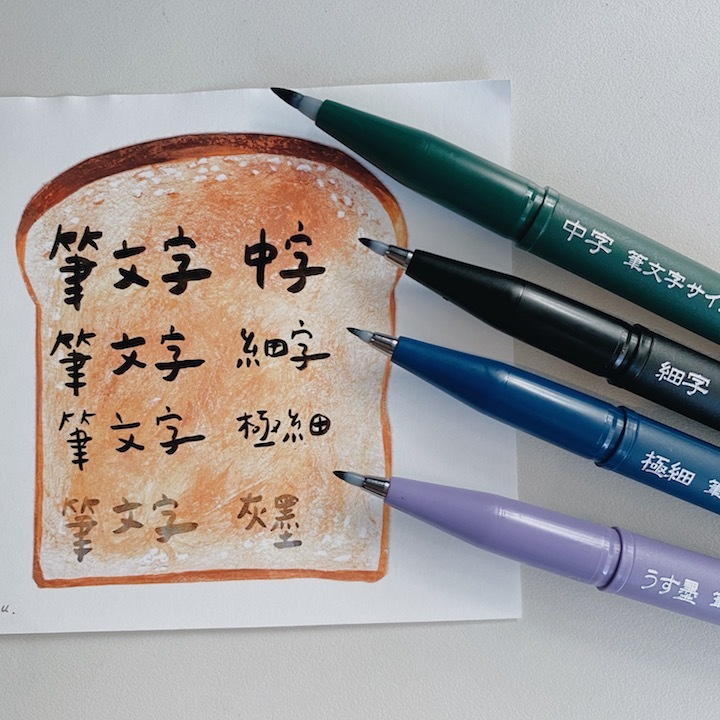 筆文字 中字
筆文字 細字
筆文字 極細
筆文字 灰墨
中字 筆文字サイ
細字
極細 筆
うす墨 筆
u.